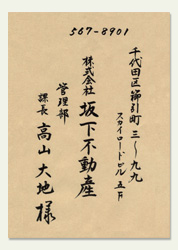 567-8901
千代田区錦引町三〜九九
スカイロードビル 五F
株式会社 坂下不動産
管理部
課長 高山 大地 様